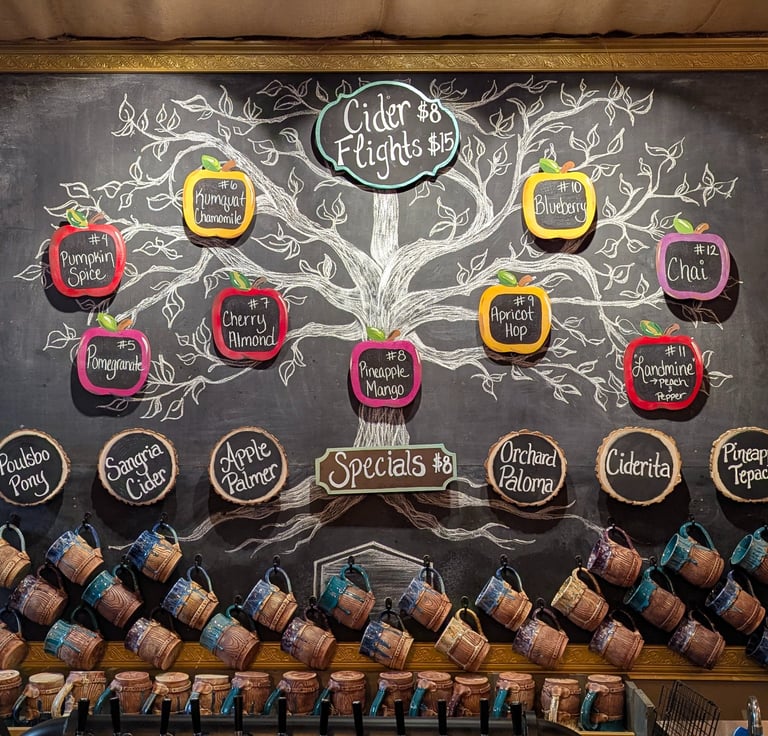 Cider $8
Flights $15
#6
Kumquat
Chamomile
#10
Blueberry
#4
Pumpkin
Spice
#12
Chai
#7
Cherry
Almond
#9
Apricot
Hop
#5
Pomegranate
#8
Pineapple
Mango
#11
Landmine
→ Peach
&
Pepper
Poulsbo
Pony
Sangria
Cider
Apple
Palmer
Specials $8
Orchard
Paloma
Ciderita